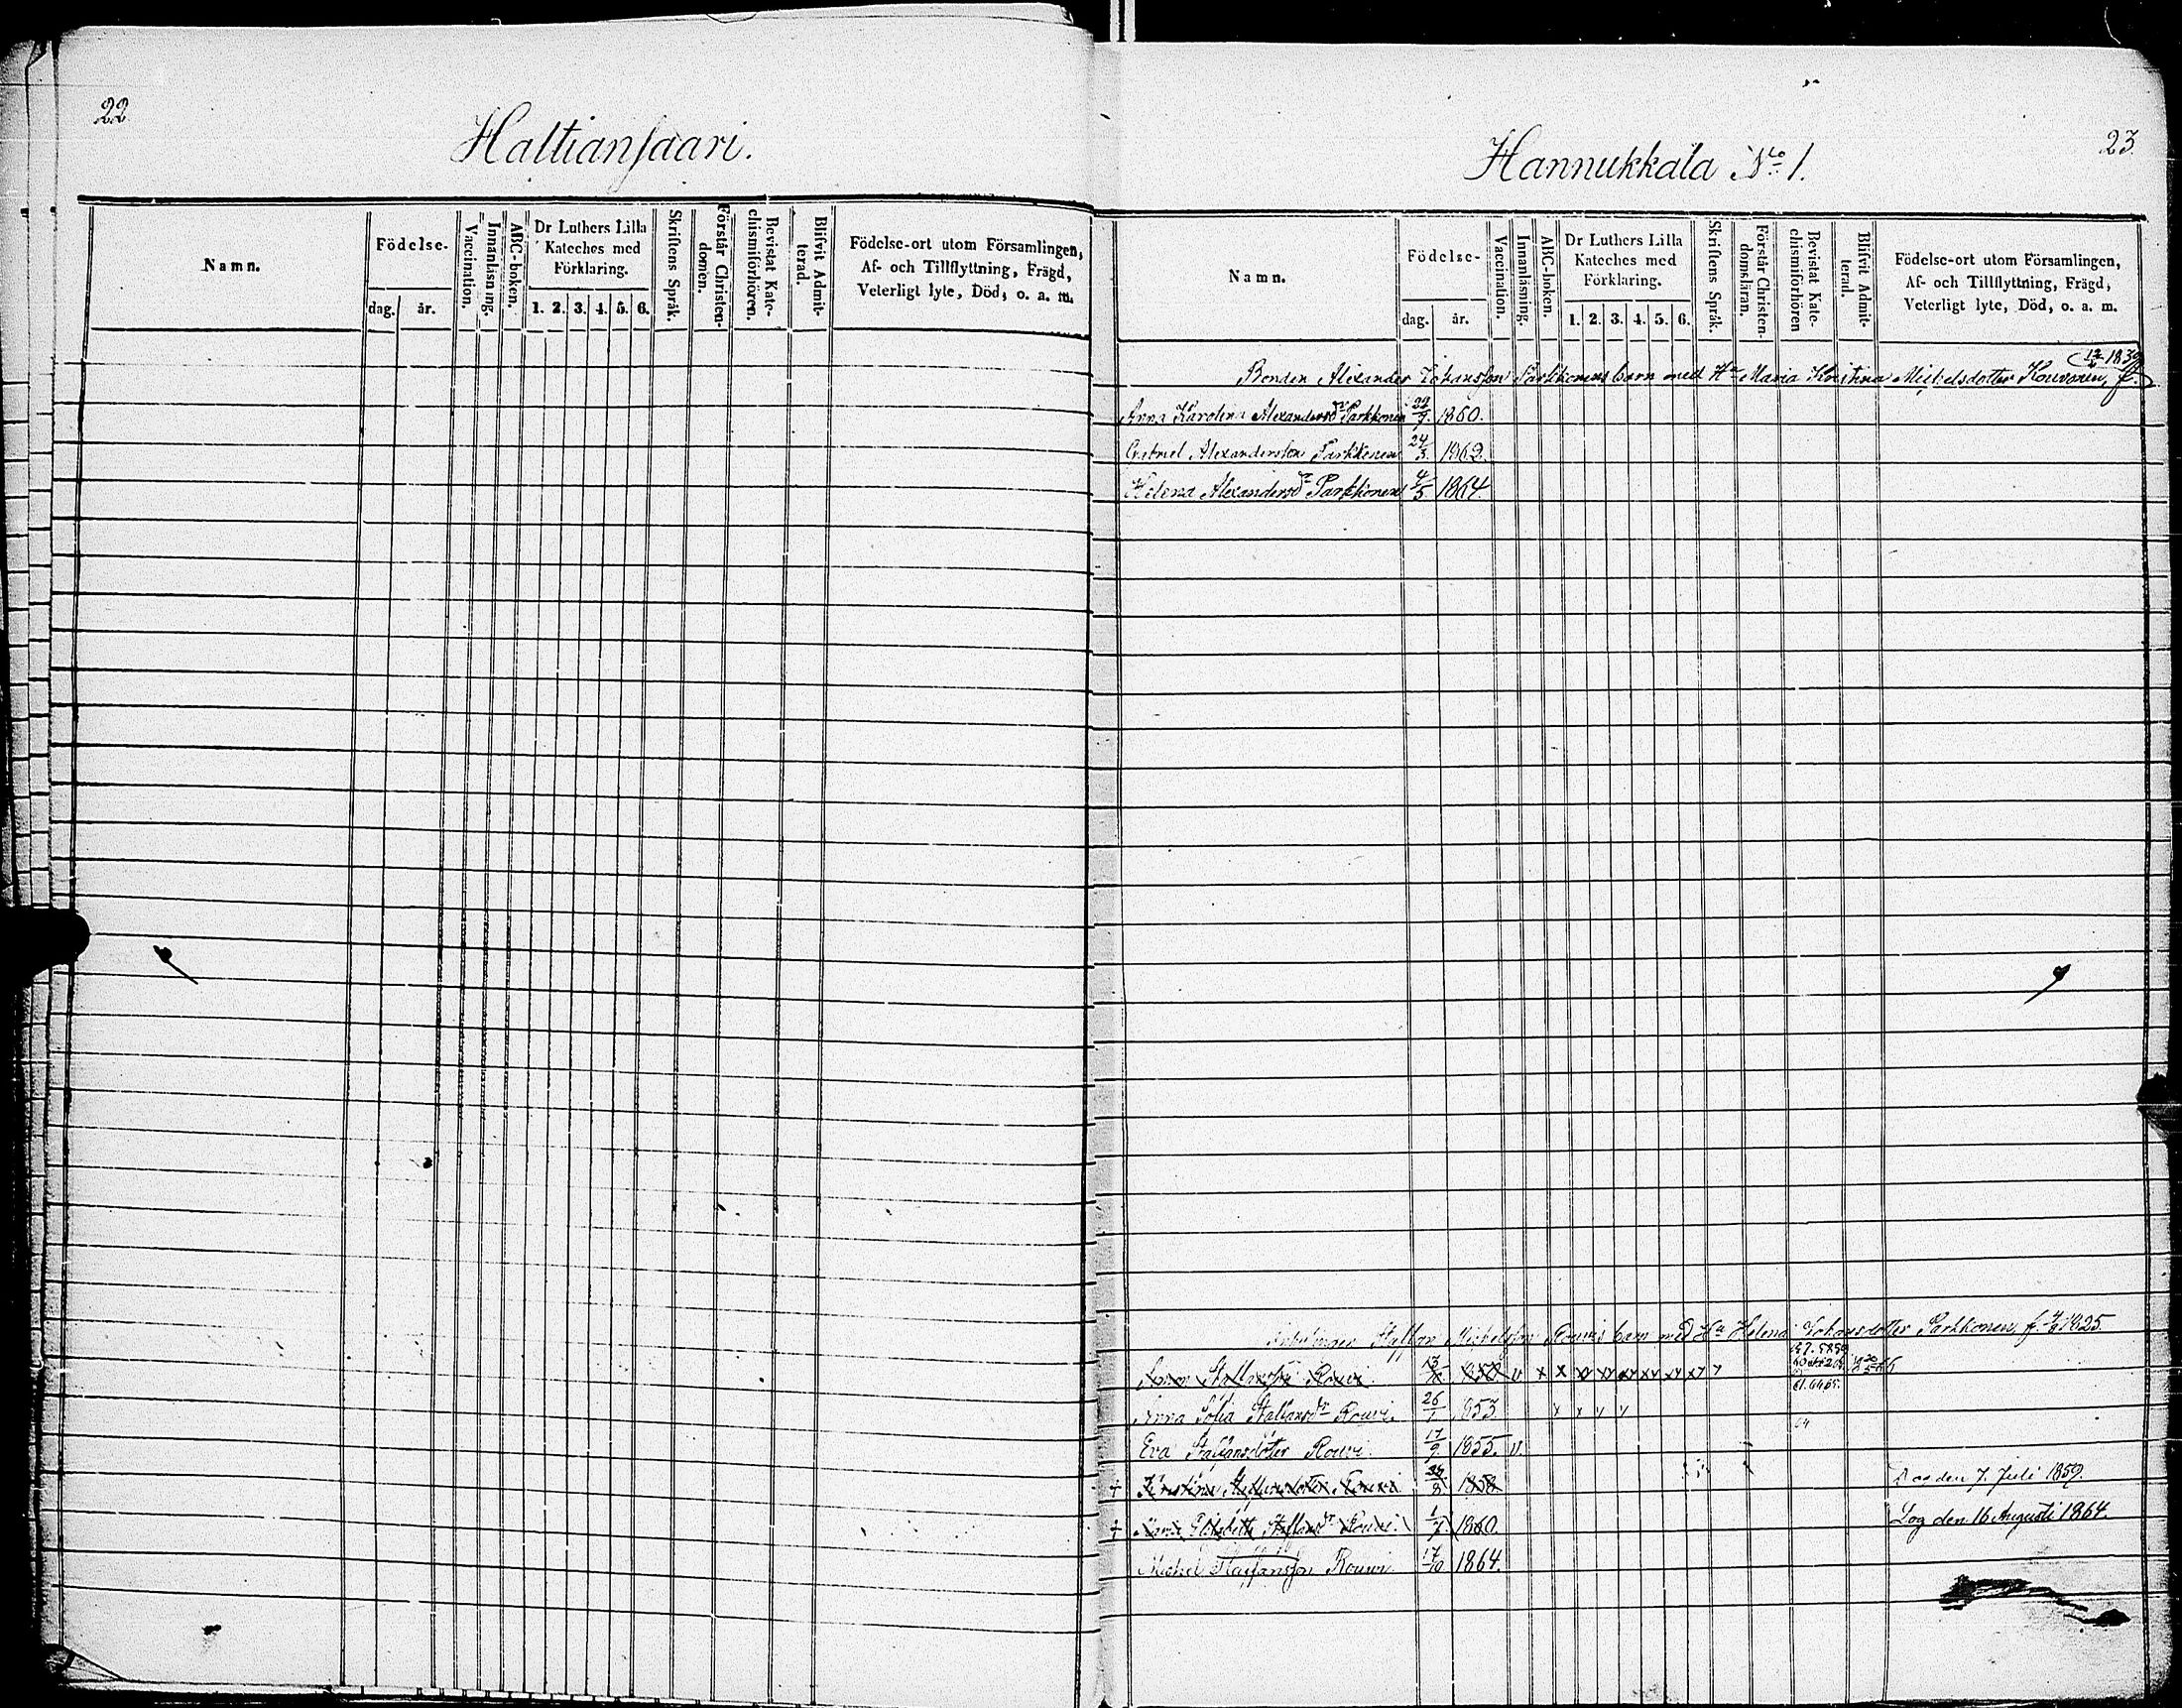 22
Haltiansaari.
Namn.
Födelse-
dag. år.
Vaccination.
Innanläsning.
ABC-boken.
Dr Luthers Lilla
Kateches med
Förklaring.
1. 2. 3. 4. 5. 6.
Skriftens Språk.
Förstår Christen-
domen.
Bevistat Kate-
chismiförhören.
Blifvit Admit-
terad.
Födelse-ort utom Församlingen,
Af- och Tillflyttning, Frägd,
Veterligt lyte, Död, o. a. m.
23
Hannukkala No 1.
Namn.
Födelse-
dag. år.
Vaccination.
Innanläsning.
ABC-boken.
Dr Luthers Lilla
Kateches med
Förklaring.
1. 2. 3. 4. 5. 6.
Skriftens Språk.
Förstår Christen-
domsläran.
Bevistat Kate-
chismiförhören
Blifvit Admit-
terad.
Födelse-ort utom Församlingen,
Af- och Tillflyttning, Frägd,
Veterligt lyte, Död, o. a. m.
Bonden Alexander Johansson Parkkonens barn med Hu Maria Kristina Michelsdotter Kouvonen, f. 1839
Anna Karolina Alexandersdr Parkkonen 22/9. 1860.
Gabriel Alexandersson Parkkonen 24/3. 1862.
Helena Alexandersdr Parkkonen 4/5 1864
Staffan Michelsson Rouvis barn med Hu Helena Johansdotter Parkkonen, f. 1825
Staffansson Rouvi. v x x
Anna Sofia Staffansdr Rouvi. 26/1 1853 x x y y 64
Eva Staffansdotter Rouvi. 17/9. 1855. v.
+ Kristina Staffansdotter Rouvi 8 1858 Dog den 7. Juli 1859.
+ Maria Elisabeth Staffansdr Rouvi. 1/7. 1860. Dog den 16 Augusti 1864.
Michel Staffansson Rouvi 17/10 1864.